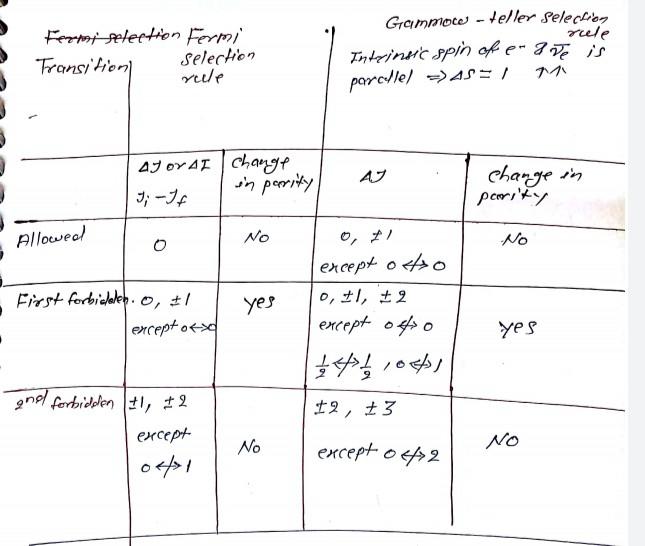 Fermi selection Fermi
selection
rule
Transition
Gammow - teller selection
rule
Intrinsic spin of e- & ν̅e is
parallel ⇒ ΔS = 1 ↑↑
ΔJ or ΔI
Ji - Jf
change
in parity
ΔJ
change in
parity
Allowed
0
No
0, ±1
except 0 ↮ 0
No
First forbidden.
0, ±1
except 0↔0
yes
0, ±1, ±2
except 0 ↮ 0
1/2 ↮ 1/2 , 0 ↮ 1
yes
2nd forbidden
±1, ±2
except
0 ↮ 1
No
±2, ±3
except 0 ↮ 2
NO